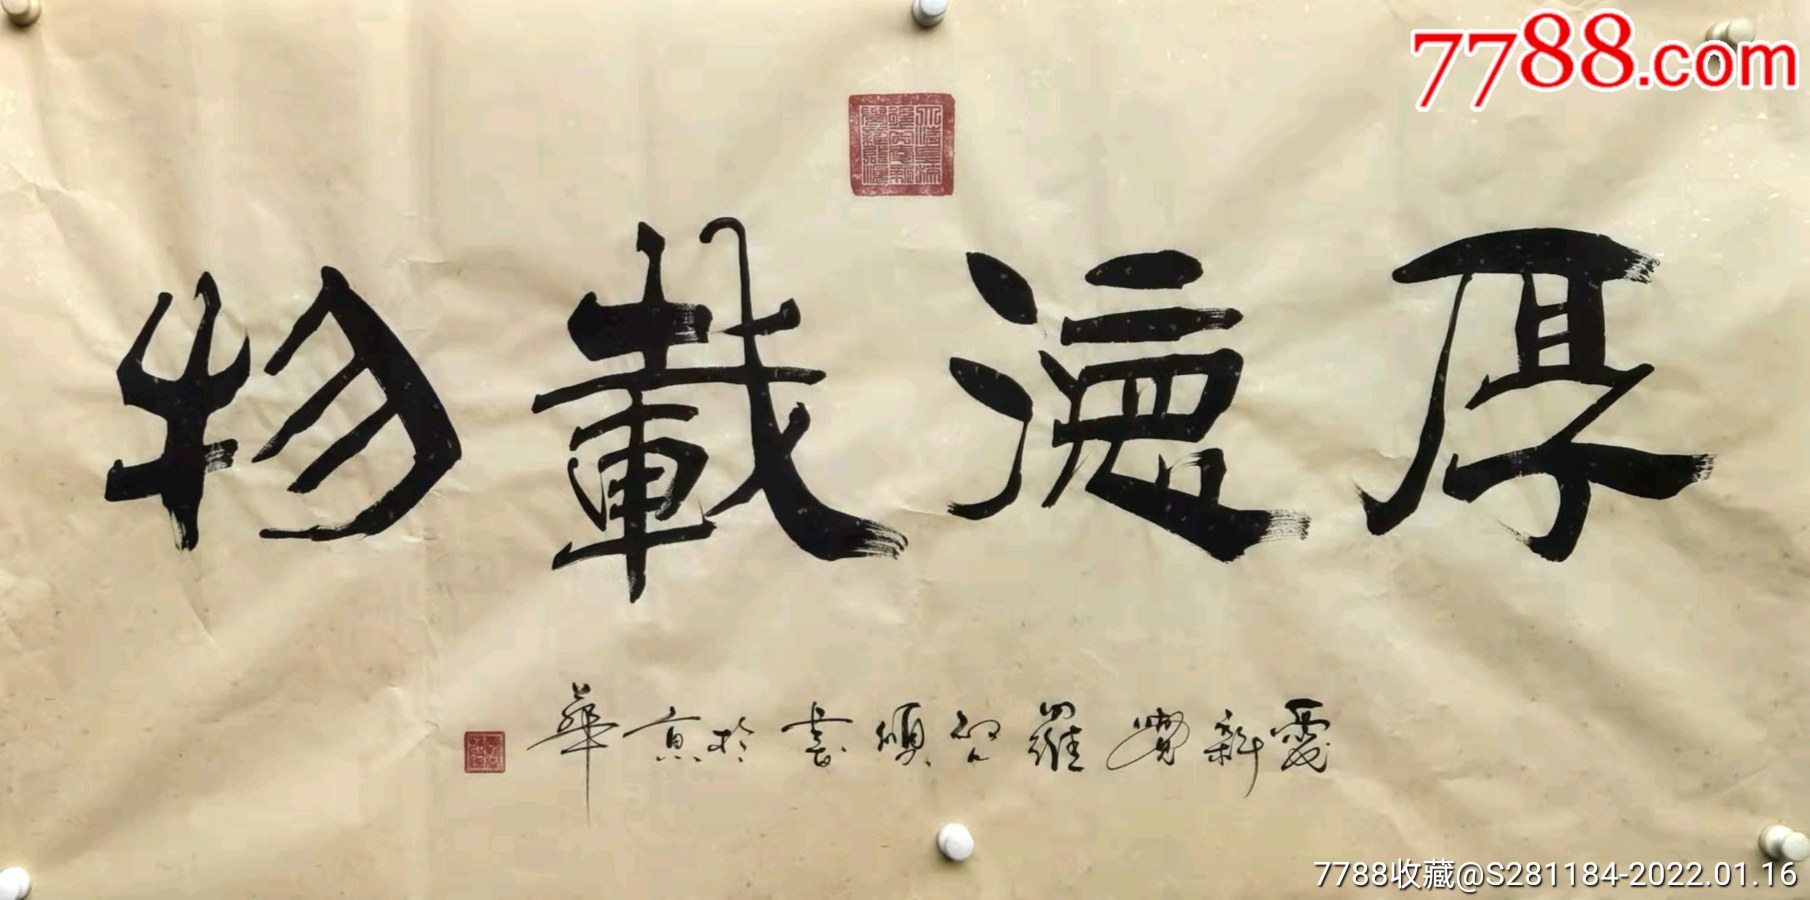 7788.com
厚德載物
愛新覺羅啟頌書於京華
7788收藏@S281184-2022.01.16